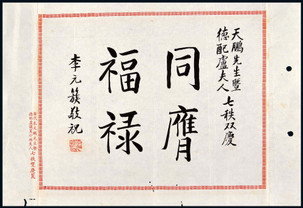 天鹏先生暨
德配盧夫人 七秩双慶
同膺
福禄
李元簇敬祝